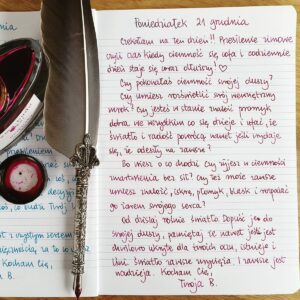 Poniedziałek 21 grudnia
Czekałam na ten dzień!! Przesilenie zimowe
czyli czas kiedy ciemność się cofa i codziennie
dzień staje się coraz dłuższy ♡
Czy pokochałaś ciemność swojej duszy?
Czy umiesz rozświetlić swój wewnętrzny
mrok? Czy jesteś w stanie znaleźć promyk
dobra we wszystkim co się dzieje i ufać, że
światło i radość powrócą nawet jeśli wydaje
się, że odeszły na zawsze?
Bo wiesz o co chodzi, czy żyjesz w ciemności
martwienia bez sił? Czy też może zawsze
umiesz znaleźć iskrę, płomyk, blask i rozpalić
go żarem swojego serca?
Od dzisiaj rośnie światło. Dopuść je do
swojej duszy, pamiętaj że nawet jeśli jest
chwilowo ukryte dla twoich oczu, istnieje i
lśni. Światło zawsze wygrywa i zawsze jest
nadzieja. Kocham Cię,
Twoja B.
Kocham Cię,
B.